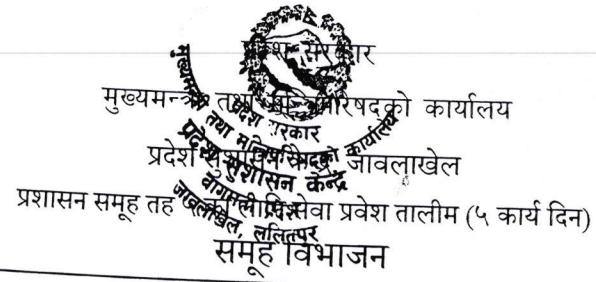 प्रदेश सरकार
मुख्यमन्त्री तथा मन्त्रिपरिषद्को कार्यालय
प्रदेश सुशासन केन्द्र जावलाखेल
प्रशासन समूह तह सेवा प्रवेश तालीम (५ कार्य दिन)
समूह विभाजन
प्रदेश सरकार
मुख्यमन्त्री तथा मन्त्रिपरिषद्को कार्यालय
प्रदेश सुशासन केन्द्र
बागमती प्रदेश
जावलाखेल, ललितपुर